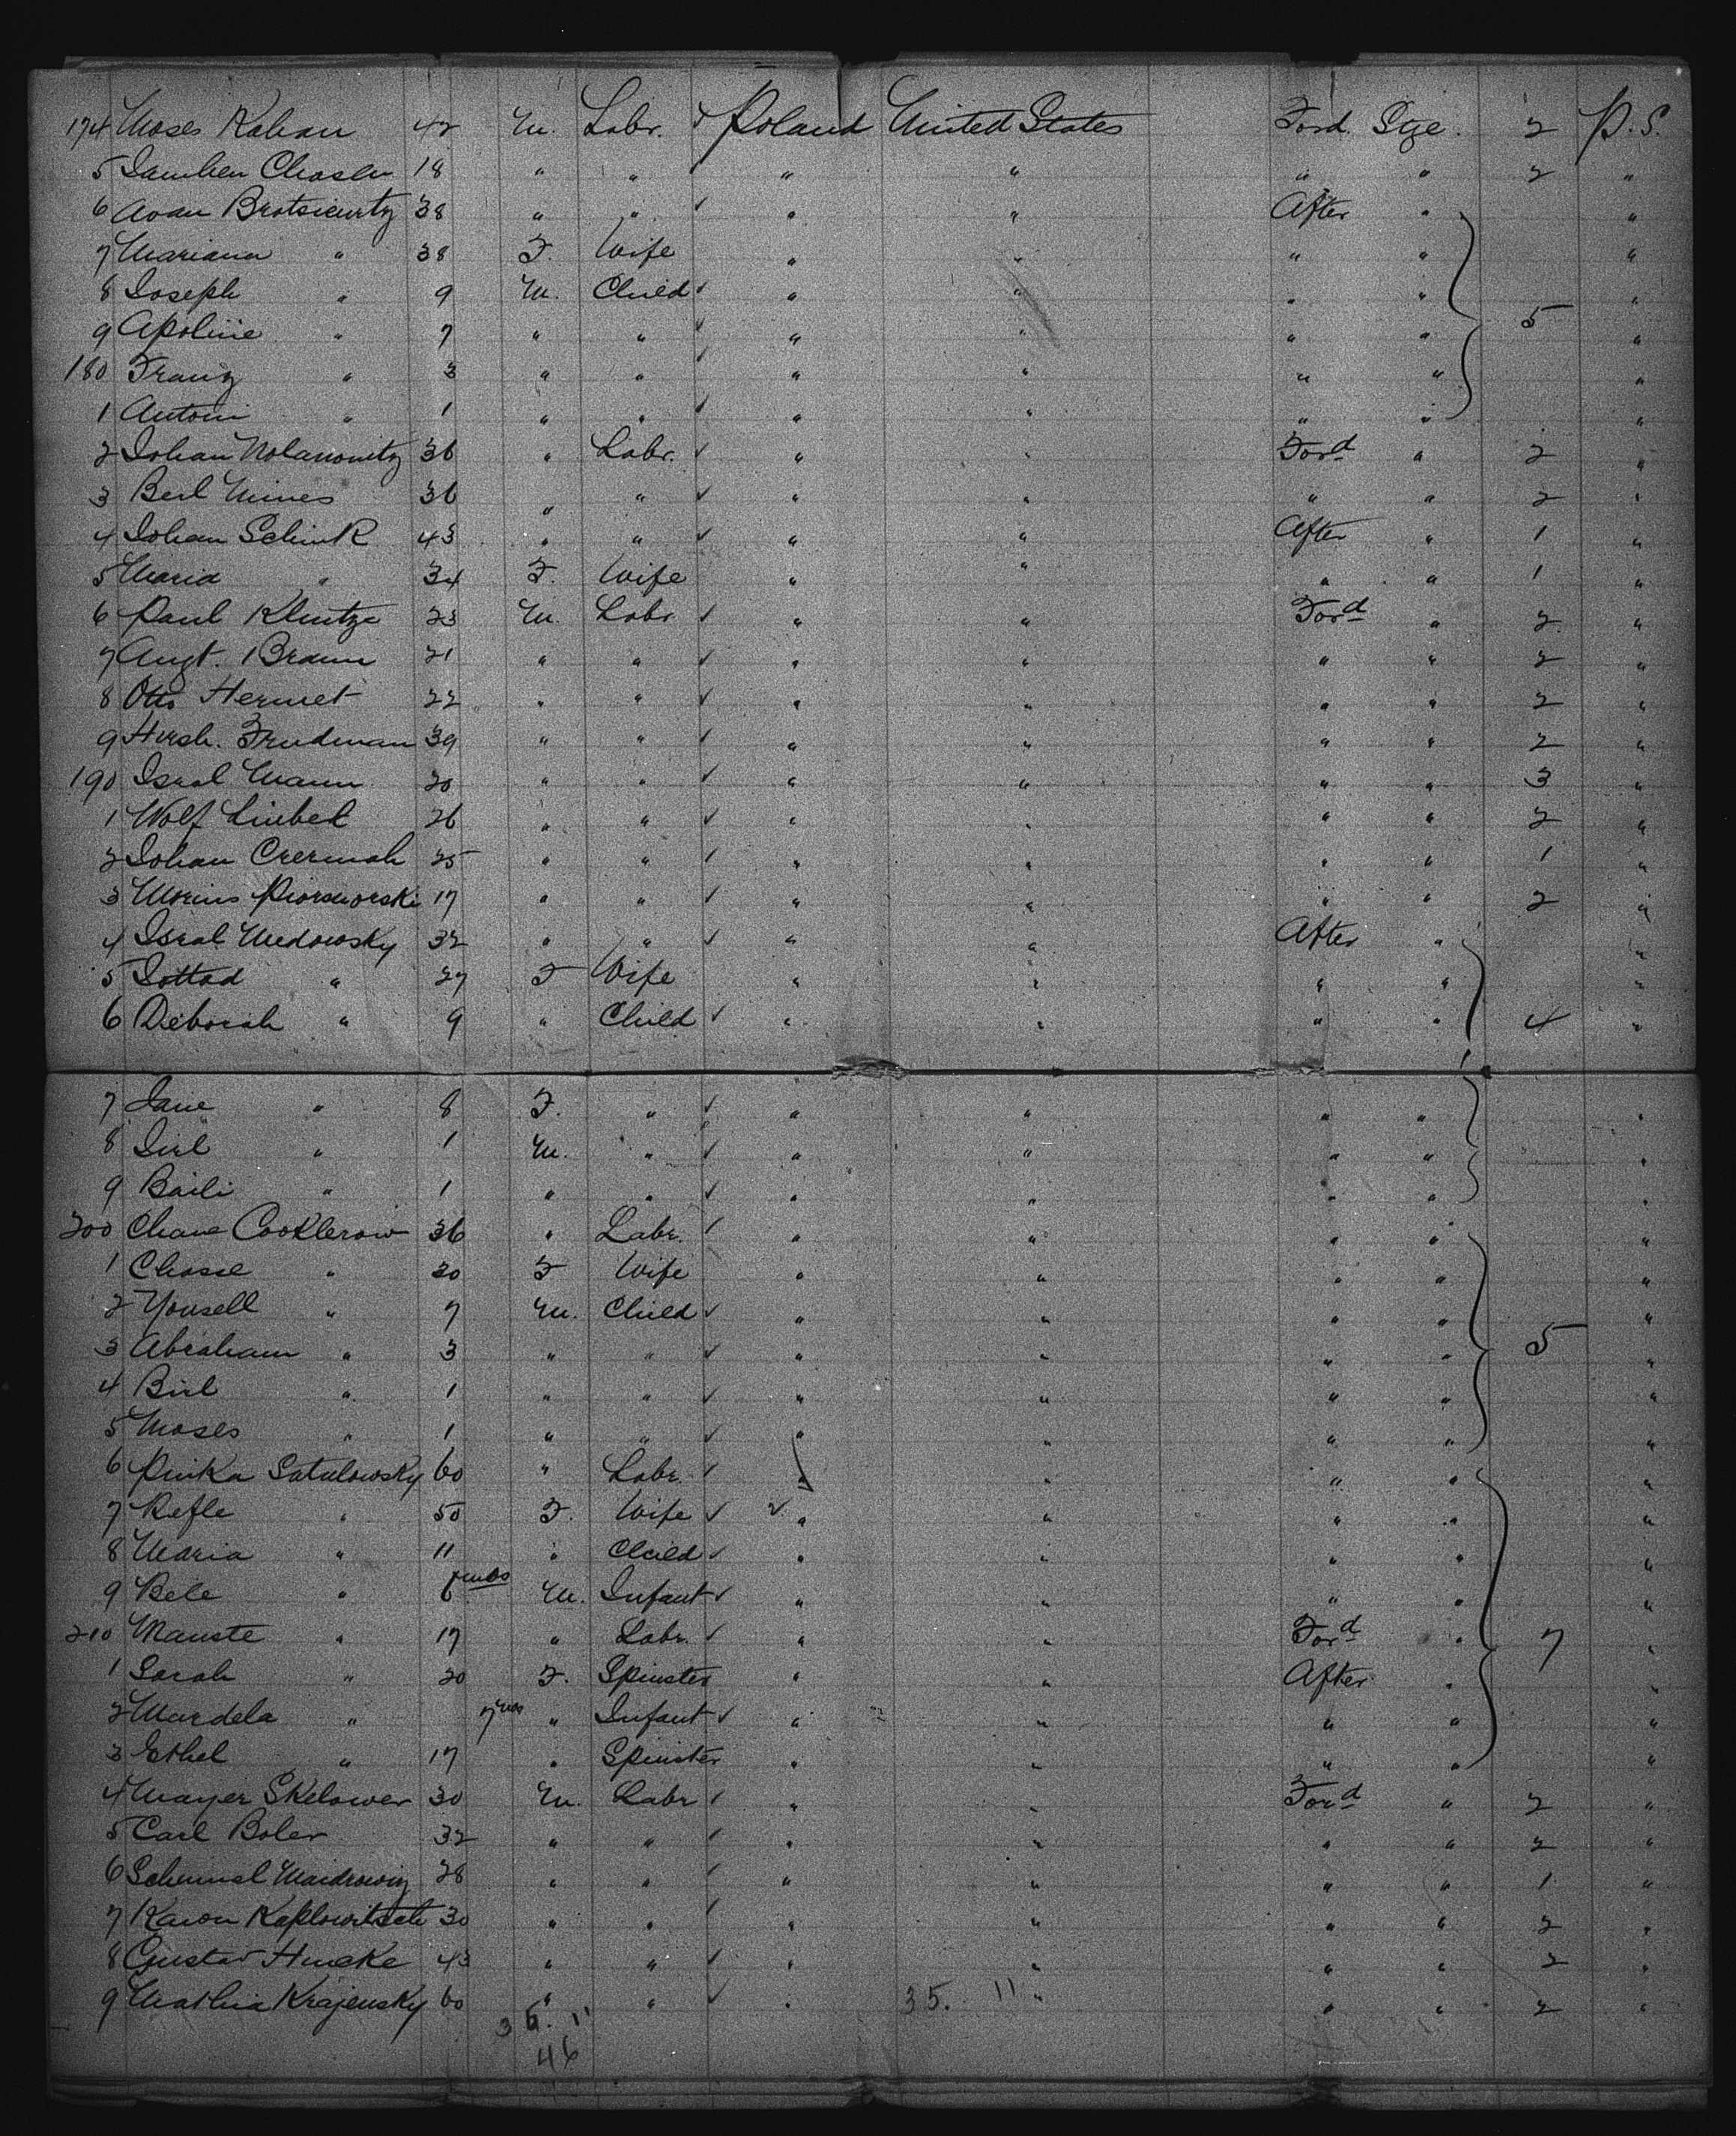 174 Moses Kahan 42 M. Labr. ✓ Poland United States Ford. Stge. 2 P.S.
5 Chasen 18 " " " " " " 2 "
6 Brotsicurtz 38 " " ✓ " " After " "
7 Mariana " 38 F. Wife " " " " "
8 Joseph " 9 M. Child ✓ " " " " "
9 Apoline " 7 " " ✓ " " " " 5 "
180 Franz " 3 " " ✓ " " " " "
1 Antoni " 1 " " ✓ " " " " "
2 Johan Nolanowitz 36 " Labr. ✓ " " Ford " 2 "
3 Berl Mines 36 " " ✓ " " " " 2 "
4 Johan Schink 43 " " ✓ " " After " 1 "
5 Maria " 34 F. Wife " " " " 1 "
6 Paul Klintze 23 M. Labr. ✓ " " Ford " 2 "
7 Augt. Braun 21 " " ✓ " " " " 2 "
8 Otto Hermet 22 " " ✓ " " " " 2 "
9 Hersh. Frudman 39 " " ✓ " " " " 2 "
190 Isral Mann 20 " " ✓ " " " " 3 "
1 Wolf Liebel 26 " " ✓ " " " " 2 "
2 Johan Czermak 25 " " ✓ " " " " 1 "
3 17 " " ✓ " " " " 2 "
4 Isral Medowsky 32 " " ✓ " " After " "
5 Lottad " 27 F Wife " " " " "
6 Deborah " 9 " Child ✓ " " " " 4 "
7 Jane " 8 F. " ✓ " " " " "
8 " 1 M. " ✓ " " " " "
9 Baili " 1 " " ✓ " " " " "
200 Chane Cooklerow 36 " Labr. ✓ " " " " "
1 Chasse " 30 F Wife " " " " "
2 Yousell " 7 M. Child ✓ " " " " "
3 Abraham " 3 " " ✓ " " " " 5 "
4 Birl " 1 " " ✓ " " " " "
5 Moses " 1 " " ✓ " " " " "
6 Pinka Satulowsky 60 " Labr. ✓ " " " " "
7 Refle " 50 F. Wife ✓ ✓ " " " " "
8 Maria " 11 " Child ✓ " " " " "
9 Bele " 6 mos M. Infant ✓ " " " " "
210 Mauste " 17 " Labr. ✓ " " Ford " 7 "
1 Sarah " 20 F. Spinster " " After " "
2 Mardela " 7 mos " Infant ✓ " " " " "
3 Ethel " 17 " Spinster " " " " "
4 Mayer Skelower 30 M. Labr ✓ " " Ford " 2 "
5 Carl Boler 32 " " ✓ " " " " 2 "
6 Schumel 28 " " ✓ " " " " 1 "
7 Karon Kaplowitsch 30 " " ✓ " " " " 2 "
8 Gustav Hincke 43 " " ✓ " " " " 2 "
9 Mathia Krajensky 60 " " ✓ " 35. 11 " " " 2 "
36. 11
46